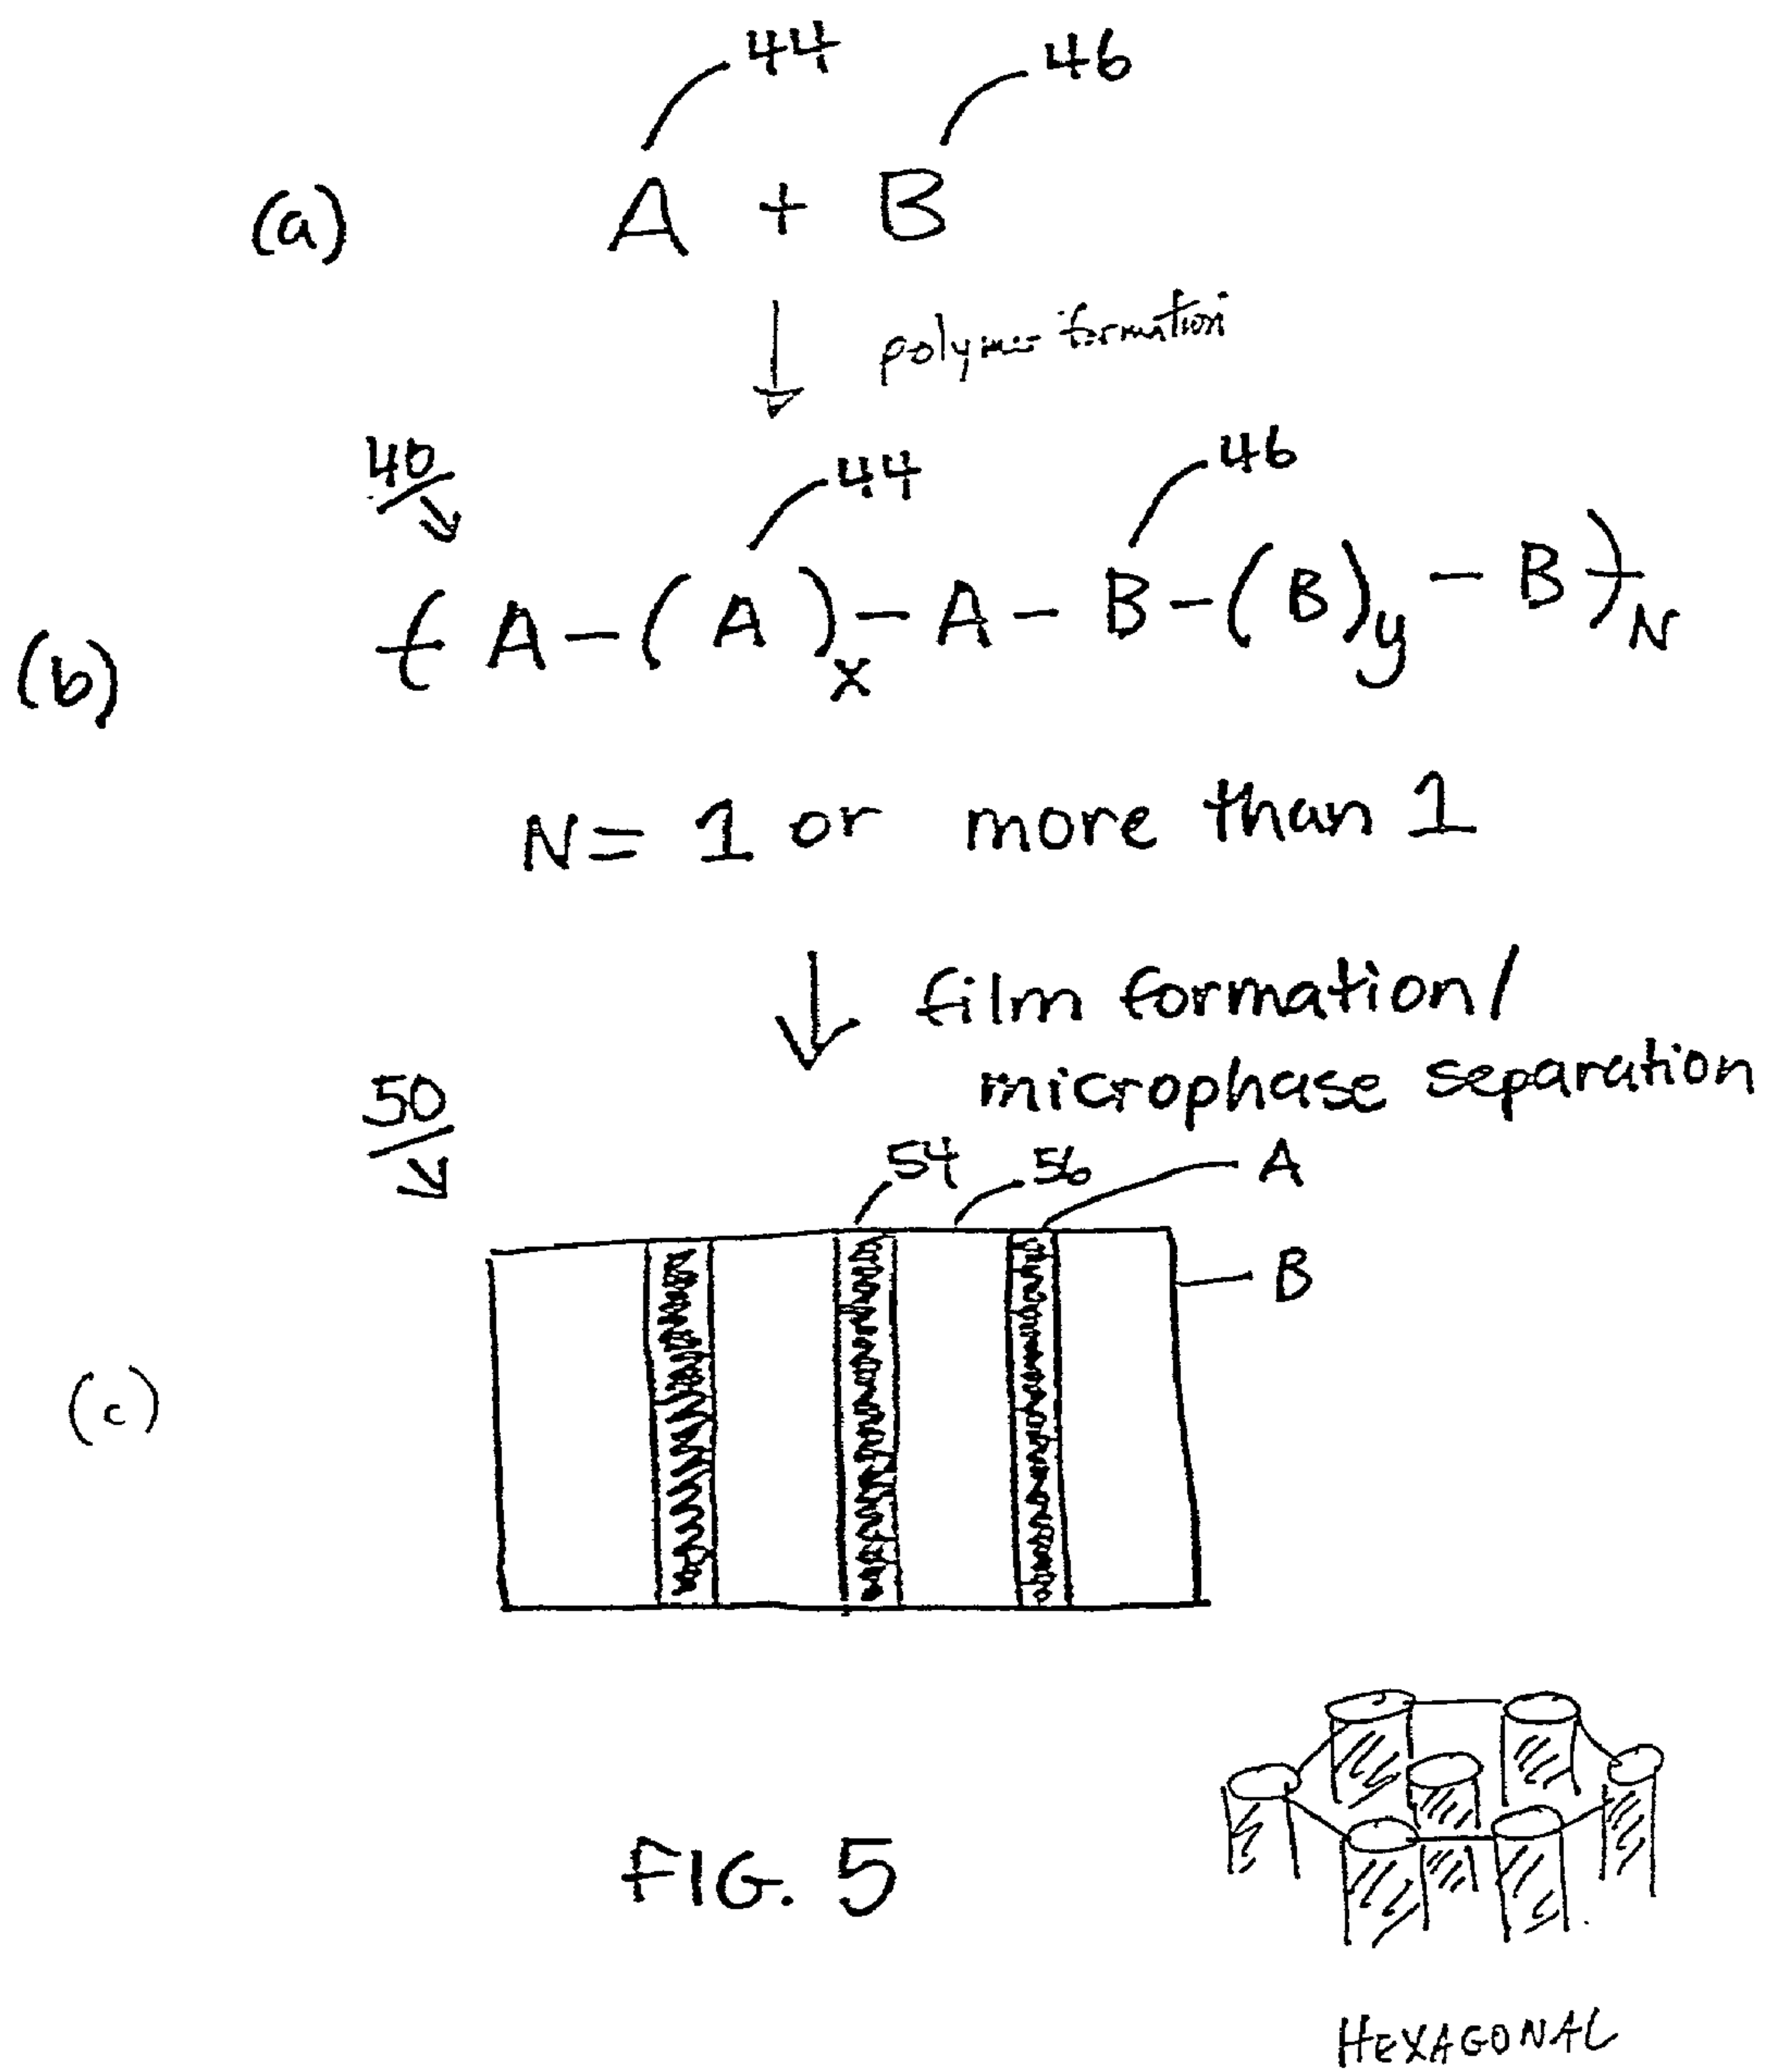 44 46
(a) A + B
polymer formation
40 44 46
(b) ( A - ( A )x - A - B - ( B )y - B )N
N = 1 or more than 1
film formation/
microphase separation
50
54 56 A
B
(c)
FIG. 5
HEXAGONAL